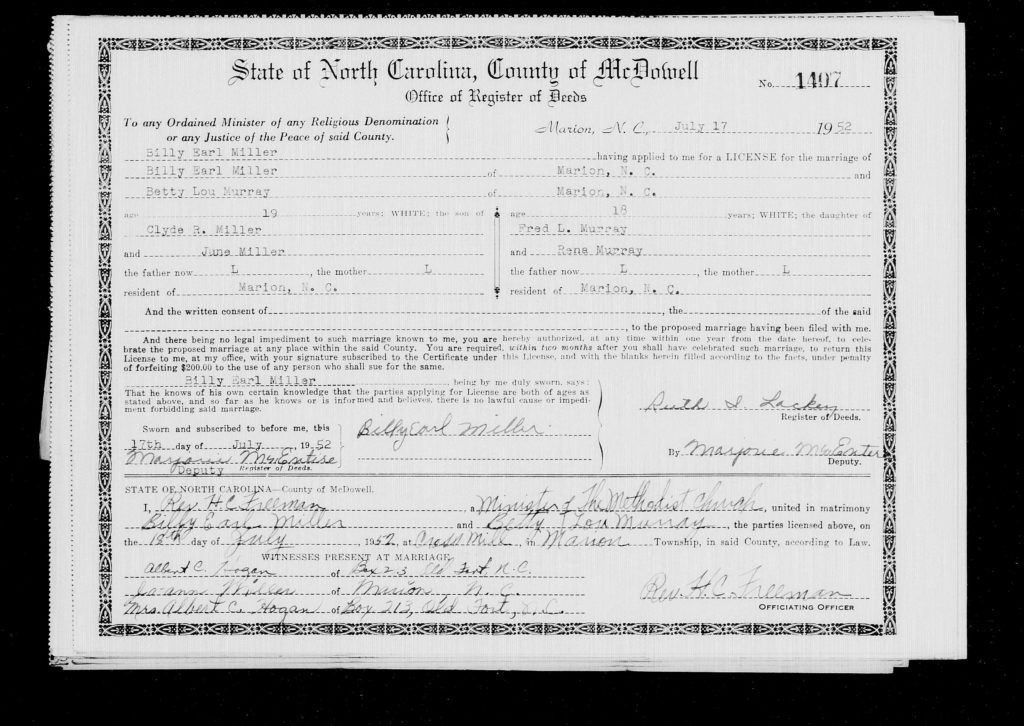 State of North Carolina, County of McDowell
No. 1407
Office of Register of Deeds
To any Ordained Minister of any Religious Denomination
or any Justice of the Peace of said County.
Marion, N. C., July 17 1952
Billy Earl Miller having applied to me for a LICENSE for the marriage of
Billy Earl Miller of Marion, N. C. and
Betty Lou Murray of Marion, N. C.
age 19 years; WHITE; the son of
Clyde R. Miller
and June Miller
the father now L, the mother L
resident of Marion, N. C.
age 18 years; WHITE; the daughter of
Fred L. Murray
and Rena Murray
the father now L, the mother L
resident of Marion, N. C.
And the written consent of , the of the said
, to the proposed marriage having been filed with me.
And there being no legal impediment to such marriage known to me, you are hereby authorized, at any time within one year from the date hereof, to cele-
brate the proposed marriage at any place within the said County. You are required, within two months after you shall have celebrated such marriage, to return this
License to me, at my office, with your signature subscribed to the Certificate under this License, and with the blanks herein filled according to the facts, under penalty
of forfeiting $200.00 to the use of any person who shall sue for the same.
Billy Earl Miller , being by me duly sworn, says:
That he knows of his own certain knowledge that the parties applying for License are both of ages as
stated above, and so far as he knows or is informed and believes, there is no lawful cause or impedi-
ment forbidding said marriage.
Sworn and subscribed to before me, this
17th day of July, 1952
Marjorie McEntire
Deputy Register of Deeds.
Billy Earl Miller
Ruth I Lackey
Register of Deeds.
By Marjorie McEntire
Deputy.
STATE OF NORTH CAROLINA—County of McDowell.
I, Rev. H.C. Freeman, a Minister of The Methodist Church, united in matrimony
Billy Earl Miller and Betty Lou Murray, the parties licensed above, on
the 18th day of July, 1952, at Cross Mill, in Marion Township, in said County, according to Law.
WITNESSES PRESENT AT MARRIAGE
Albert C. Hogan of Box 213 Old Fort, N.C.
Jo-ann Miller of Marion N. C.
Mrs. Albert C. Hogan of Box 213, Old Fort, N. C.
Rev. H.C. Freeman
OFFICIATING OFFICER